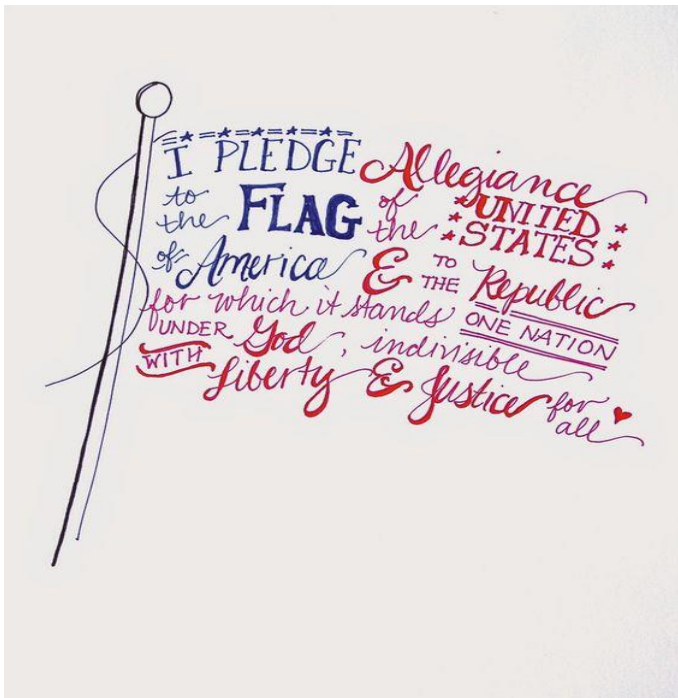 I PLEDGE Allegiance
to the FLAG of the UNITED STATES
of America & TO THE Republic
for which it stands ONE NATION
UNDER God, indivisible
WITH Liberty & Justice for all